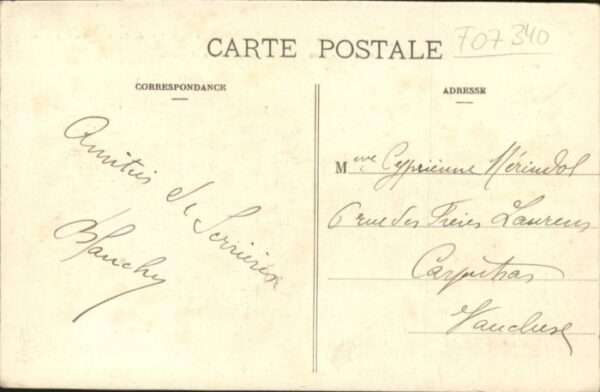 CARTE POSTALE
F07340
CORRESPONDANCE
ADRESSE
Amitiés de Serrières
Blanche
Mme Cyprienne Mérindol
6 rue des Frères Laurens
Carpentras
Vaucluse